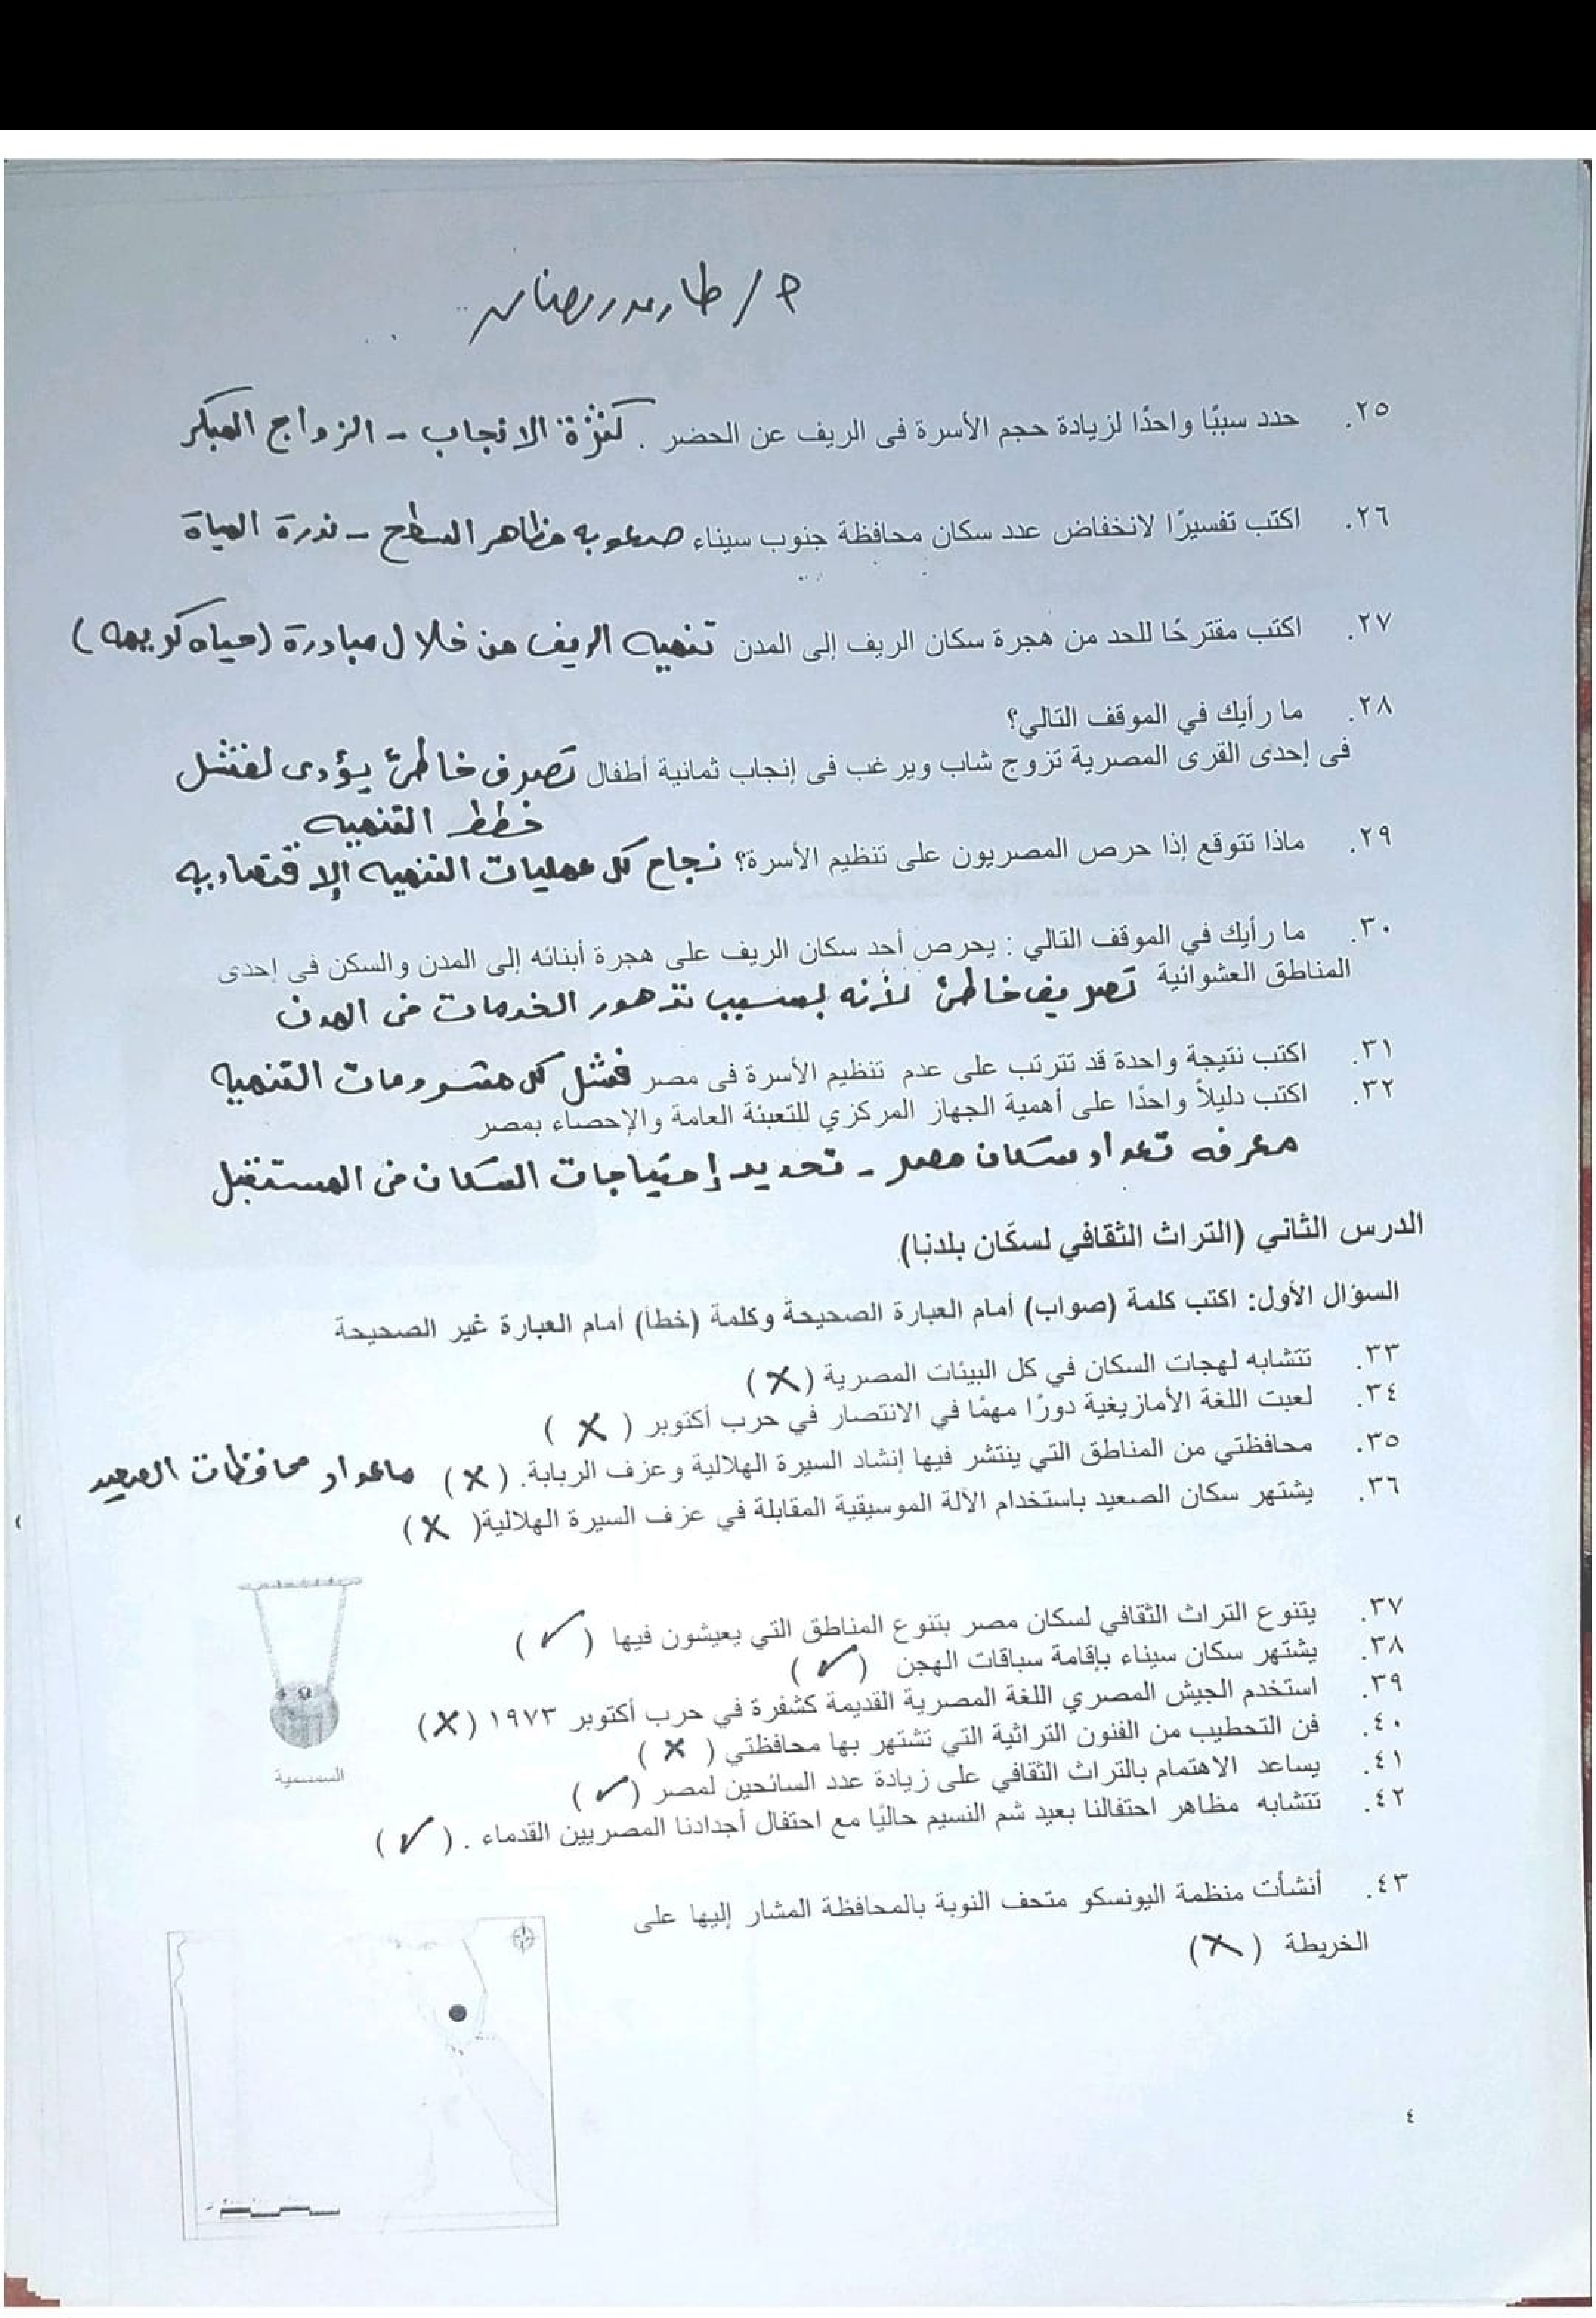 م/ طارق رمضان
٢٥. حدد سببًا واحدًا لزيادة حجم الأسرة فى الريف عن الحضر . كثرة الانجاب - الزواج المبكر
٢٦. اكتب تفسيرًا لانخفاض عدد سكان محافظة جنوب سيناء صعوبه مظاهر السطح - ندرة المياة
٢٧. اكتب مقترحًا للحد من هجرة سكان الريف إلى المدن تنميه الريف من خلال مبادرة (حياه كريمه)
٢٨. ما رأيك في الموقف التالي؟
فى إحدى القرى المصرية تزوج شاب ويرغب فى إنجاب ثمانية أطفال تصرف خاطئ يؤدى لفشل
خطط التنميه
٢٩. ماذا تتوقع إذا حرص المصريون على تنظيم الأسرة؟ نجاح كل عمليات التنميه الإقتصاديه
٣٠. ما رأيك في الموقف التالي : يحرص أحد سكان الريف على هجرة أبنائه إلى المدن والسكن فى إحدى
المناطق العشوائية تصرف خاطئ لأنه بسبب تدهور الخدمات فى المدن
٣١. اكتب نتيجة واحدة قد تترتب على عدم تنظيم الأسرة فى مصر فشل كل مشروعات التنميه
٣٢. اكتب دليلاً واحدًا على أهمية الجهاز المركزي للتعبئة العامة والإحصاء بمصر
معرفه تعداد سكان مصر - تحديد إحتياجات السكان فى المستقبل
الدرس الثاني (التراث الثقافي لسكَان بلدنا)
السؤال الأول: اكتب كلمة (صواب) أمام العبارة الصحيحة وكلمة (خطأ) أمام العبارة غير الصحيحة
٣٣. تتشابه لهجات السكان في كل البيئات المصرية (✗)
٣٤. لعبت اللغة الأمازيغية دورًا مهمًا في الانتصار في حرب أكتوبر ( ✗ )
٣٥. محافظتي من المناطق التي ينتشر فيها إنشاد السيرة الهلالية وعزف الربابة. (✗) ماعدا محافظات الصعيد
٣٦. يشتهر سكان الصعيد باستخدام الآلة الموسيقية المقابلة في عزف السيرة الهلالية( ✗)
٣٧. يتنوع التراث الثقافي لسكان مصر بتنوع المناطق التي يعيشون فيها (✓)
٣٨. يشتهر سكان سيناء بإقامة سباقات الهجن (✓)
٣٩. استخدم الجيش المصري اللغة المصرية القديمة كشفرة في حرب أكتوبر ١٩٧٣ (✗)
٤٠. فن التحطيب من الفنون التراثية التي تشتهر بها محافظتي ( ✗ )
٤١. يساعد الاهتمام بالتراث الثقافي على زيادة عدد السائحين لمصر (✓)
٤٢. تتشابه مظاهر احتفالنا بعيد شم النسيم حاليًا مع احتفال أجدادنا المصريين القدماء . (✓)
السمسمية
٤٣. أنشأت منظمة اليونسكو متحف النوبة بالمحافظة المشار إليها على
الخريطة (✗)
٤